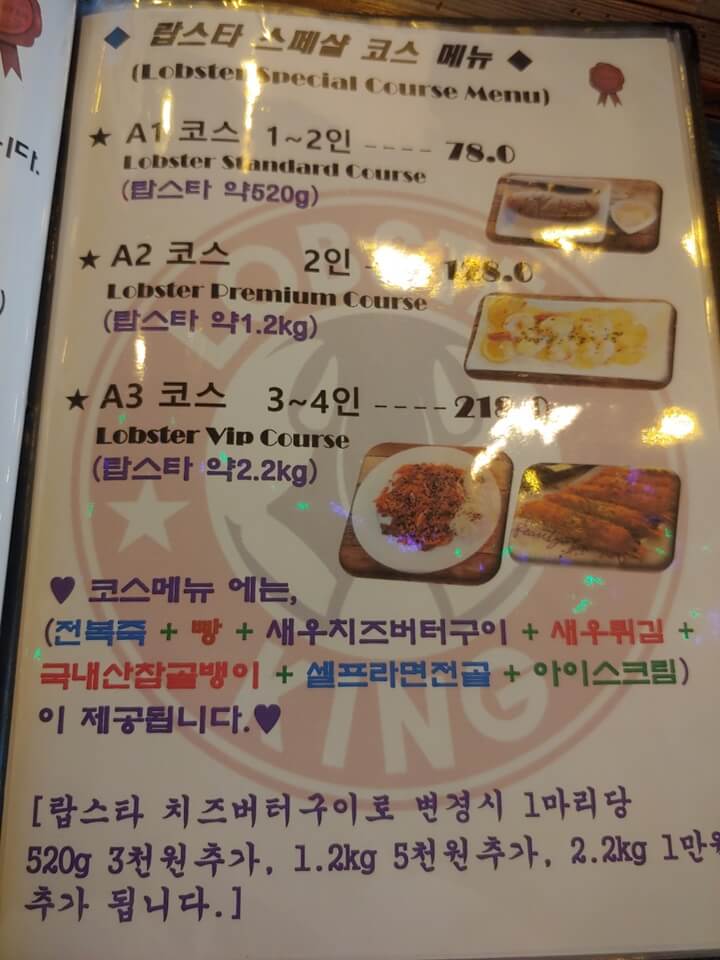 ◆ 랍스타 스페샬 코스 메뉴 ◆
(Lobster Special Course Menu)
★ A1 코스 1~2인 ---- 78.0
Lobster Standard Course
(랍스타 약520g)
★ A2 코스 2인
Lobster Premium Course
(랍스타 약1.2kg)
★ A3 코스 3~4인 ---- 218.0
Lobster Vip Course
(랍스타 약2.2kg)
♥ 코스메뉴 에는,
(전복죽 + 빵 + 새우치즈버터구이 + 새우튀김 +
국내산참골뱅이 + 셀프라면전골 + 아이스크림)
이 제공됩니다.♥
[랍스타 치즈버터구이로 변경시 1마리당
520g 3천원추가, 1.2kg 5천원추가, 2.2kg 1만원
추가 됩니다.]
LOBSTER
KING